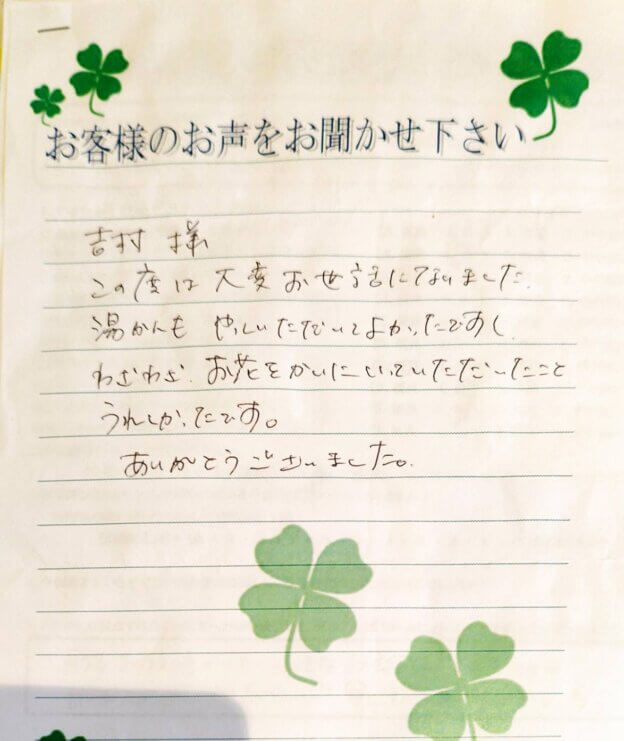 お客様のお声をお聞かせ下さい
吉村 様
この度は大変お世話になりました。
湯かんも やっていただいてよかったですし
わざわざ、お花をかいにいっていただいたこと
うれしかったです。
ありがとうございました。